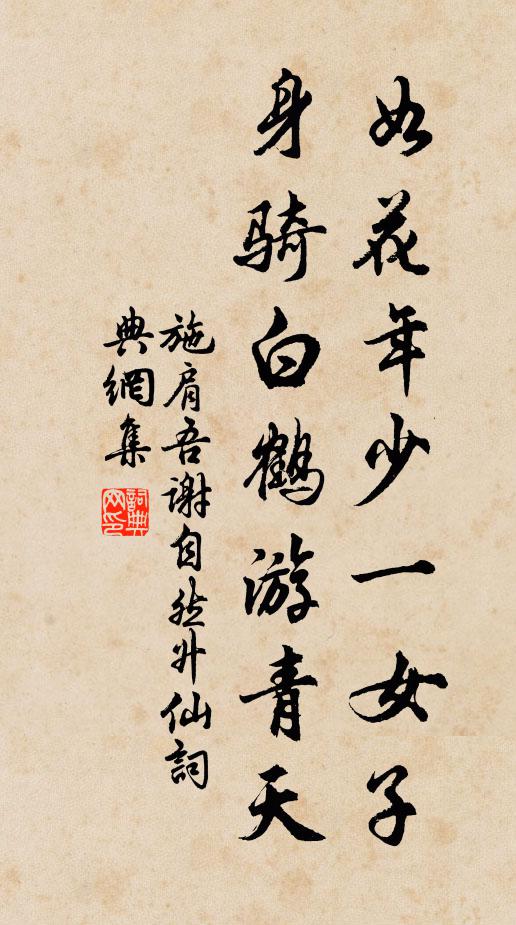 如花年少一女子
身骑白鹤游青天
施肩吾谢自然升仙詞
典網集
詞典网印